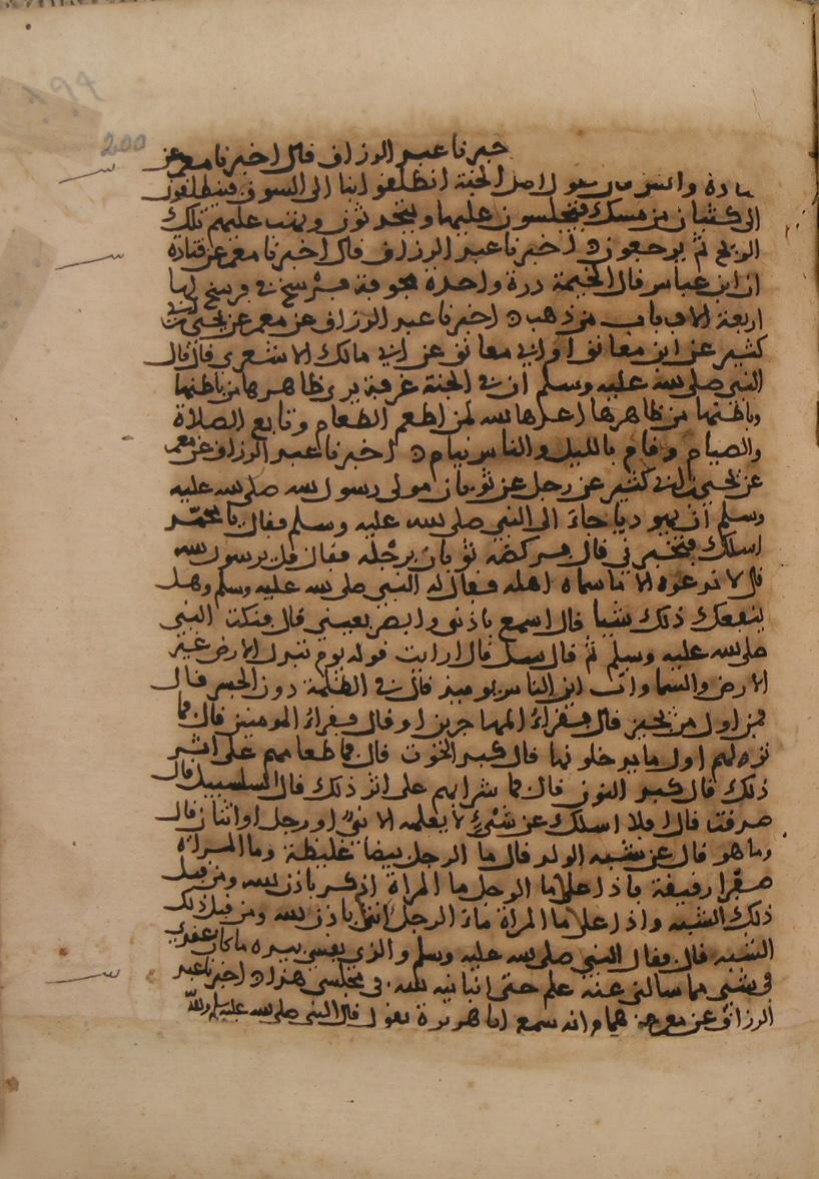 200
خبرنا عبد الرزاق قال اخبرنا معمر عن
تادة وانس قال يقول اهل الجنة انطلقوا بنا الى السوق فينطلقون
الى كثبان من مسك فيجلسون عليها ويتحدثون وتهب عليهم تلك
الريح ثم يرجعون اخبرنا عبد الرزاق قال اخبرنا معمر عن قتادة
ان ابن عباس قال الخيمة درة واحدة مجوفة فرسخ في فرسخ لها
اربعة الاف باب من ذهب اخبرنا عبد الرزاق عن معمر عن يحيى بن ابي
كثير عن ابن معانق او ابي معانق عن ابي مالك الاشعري قال قال
النبي صلى الله عليه وسلم ان في الجنة غرفة يرى ظاهرها من باطنها
وباطنها من ظاهرها اعدها الله لمن اطعم الطعام وتابع الصلاة
والصيام وقام بالليل والناس نيام اخبرنا عبد الرزاق عن معمر
عن يحيى بن ابي كثير عن رجل عن ثوبان مولى رسول الله صلى الله عليه
وسلم ان يهوديا جاء الى النبي صلى الله عليه وسلم فقال يا محمد
اسلك فتخبرني قال فركضه ثوبان برجله فقال قل يرسول الله
قال لا ندعوه الا ما سماه اهله فقال له النبي صلى الله عليه وسلم وهل
ينفعك ذلك شيا قال اسمع باذني وابصر بعيني قال فنكت النبي
صلى الله عليه وسلم ثم قال سل قال ارايت قوله يوم تبدل الارض غير
الارض والسماوات اين الناس يوميذ قال في الظلمة دون الجسر قال
فمن اول من يجيز قال فقراء المهاجرين او قال فقراء المومنين قال فما
نزلهم اول ما يدخلونها قال كبد الحوت قال فما طعامهم على اثر
ذلك قال كبد النون قال فما شرابهم على اثر ذلك قال السلسبيل قال
صدقت قال افلا اسلك عن شيء لا يعلمه الا نبي او رجل او اثنان قال
وما هو قال عن شبه الولد قال ما الرجل بيضا غليظة وما المراة
صفرا رقيقة فاذا علا ما الرجل ما المراة اذكر باذن الله ومن قبل
ذلك الشبه واذا علا ما المراة ماء الرجل انثى باذن الله ومن قبل ذلك
الشبه قال فقال النبي صلى الله عليه وسلم والذي نفسي بيده ما كان عندي
في شيي مما سالني عنه علم حتى انبانيه الله في مجلسي هذا اخبرنا عبد
الرزاق عن معمر عن همام انه سمع ابا هريرة يقول قال النبي صلى الله عليه وسلم